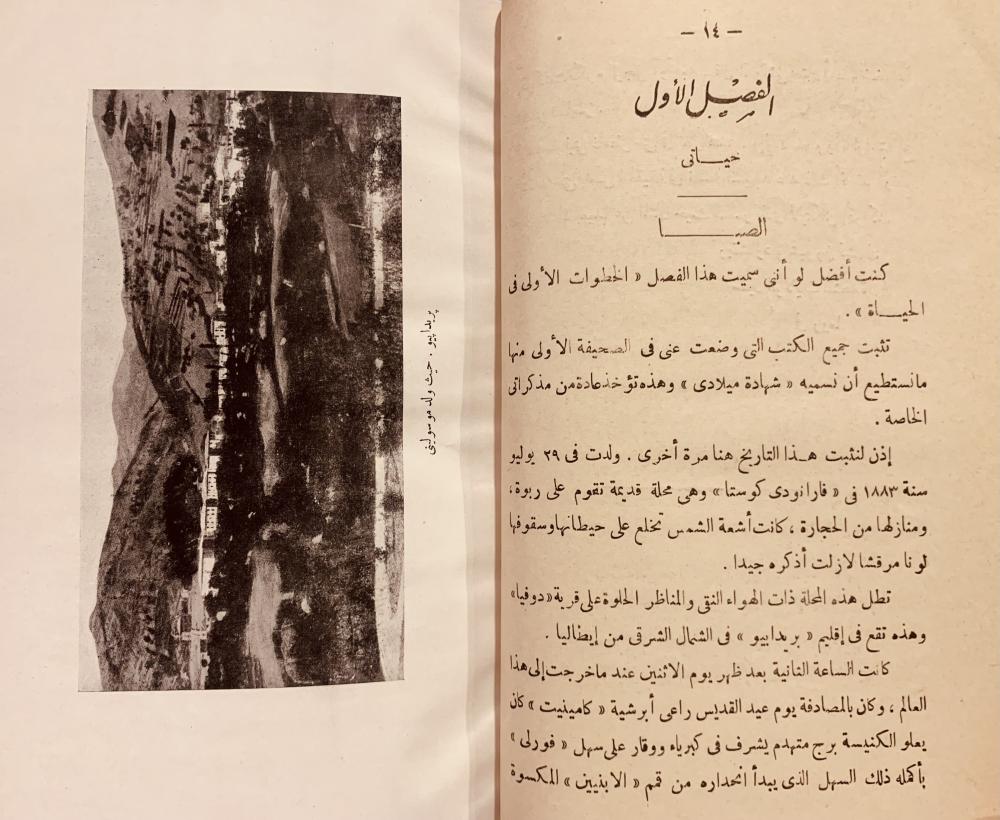 — ١٤ —
الفصل الأول
حياتى
الصبا
كنت أفضل لو أننى سميت هذا الفصل « الخطوات الأولى فى
الحياة » .
تثبت جميع الكتب التى وضعت عنى فى الصحيفة الأولى منها
مانستطيع أن نسميه « شهادة ميلادى » وهذه تؤخذ عادة من مذكراتى
الخاصة .
إذن لنثبت هذا التاريخ هنا مرة أخرى . ولدت فى ٢٩ يوليو
سنة ١٨٨٣ فى « فارانودى كوستا » وهى محلة قديمة تقوم على ربوة ،
ومنازلها من الحجارة ، كانت أشعة الشمس تخلع على حيطانها وسقوفها
لونا مرقشا لازلت أذكره جيدا .
تطل هذه المحلة ذات الهواء النقى والمناظر الحلوة على قرية « دوفيا »
وهذه تقع فى إقليم « بريدابيو » فى الشمال الشرقى من إيطاليا .
كانت الساعة الثانية بعد ظهر يوم الاثنين عند ماخرجت إلى هذا
العالم ، وكان بالمصادفة يوم عيد القديس راعى أبرشية « كامينيت » كان
يعلو الكنيسة برج متهدم يشرف فى كبرياء ووقار على سهل « فورلى »
بأكمله ذلك السهل الذى يبدأ انحداره من قمم « الابنيين » المكسوة
بريدابيو . حيث ولد موسولينى